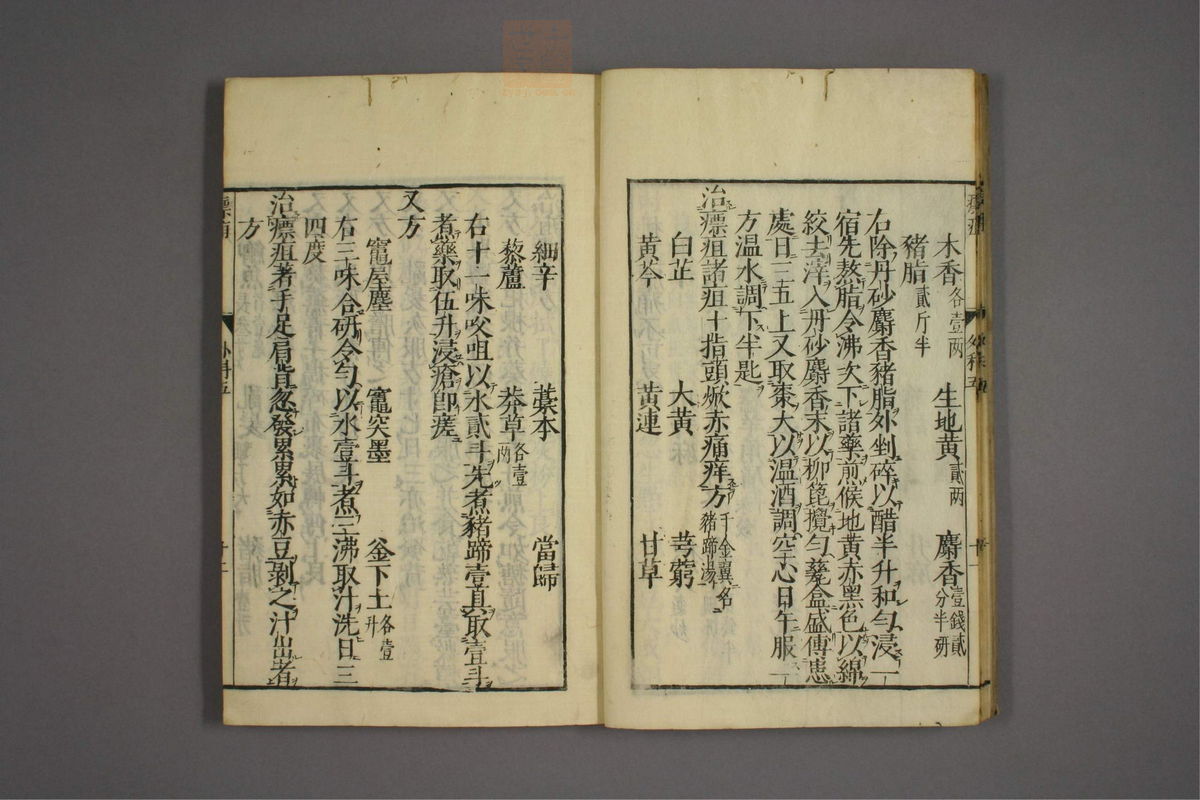 木香各壹两 生地黄貳两 麝香壹錢貳分半研
豬脂貳斤半
右除丹砂麝香豬脂外剉碎以醋半升和勻浸一
宿先熬脂令沸次下諸藥煎候地黄赤黑色以綿
絞去滓入丹砂麝香末以柳篦攪勻甆盒盛傅患
處日三五上又取棗大以温酒調空心日午服一
方温水調下半匙
治瘭疽諸疽十指頭焮赤痛痒方千金翼名豬蹄湯
白芷 大黄 芎藭
黄芩 黄連 甘草
細辛 藁本 當歸
藜蘆 莽草各壹两
右十一味㕮咀以水貳斗先煮豬蹄壹具取壹斗
煮藥取伍升浸瘡即差
又方
竈屋塵 竈突墨 釜下土各壹升
右三味合研令勻以水壹斗煮三沸取汁洗日三
四度
治瘭疽著手足肩背忽發累累如赤豆剥之汁出者
方